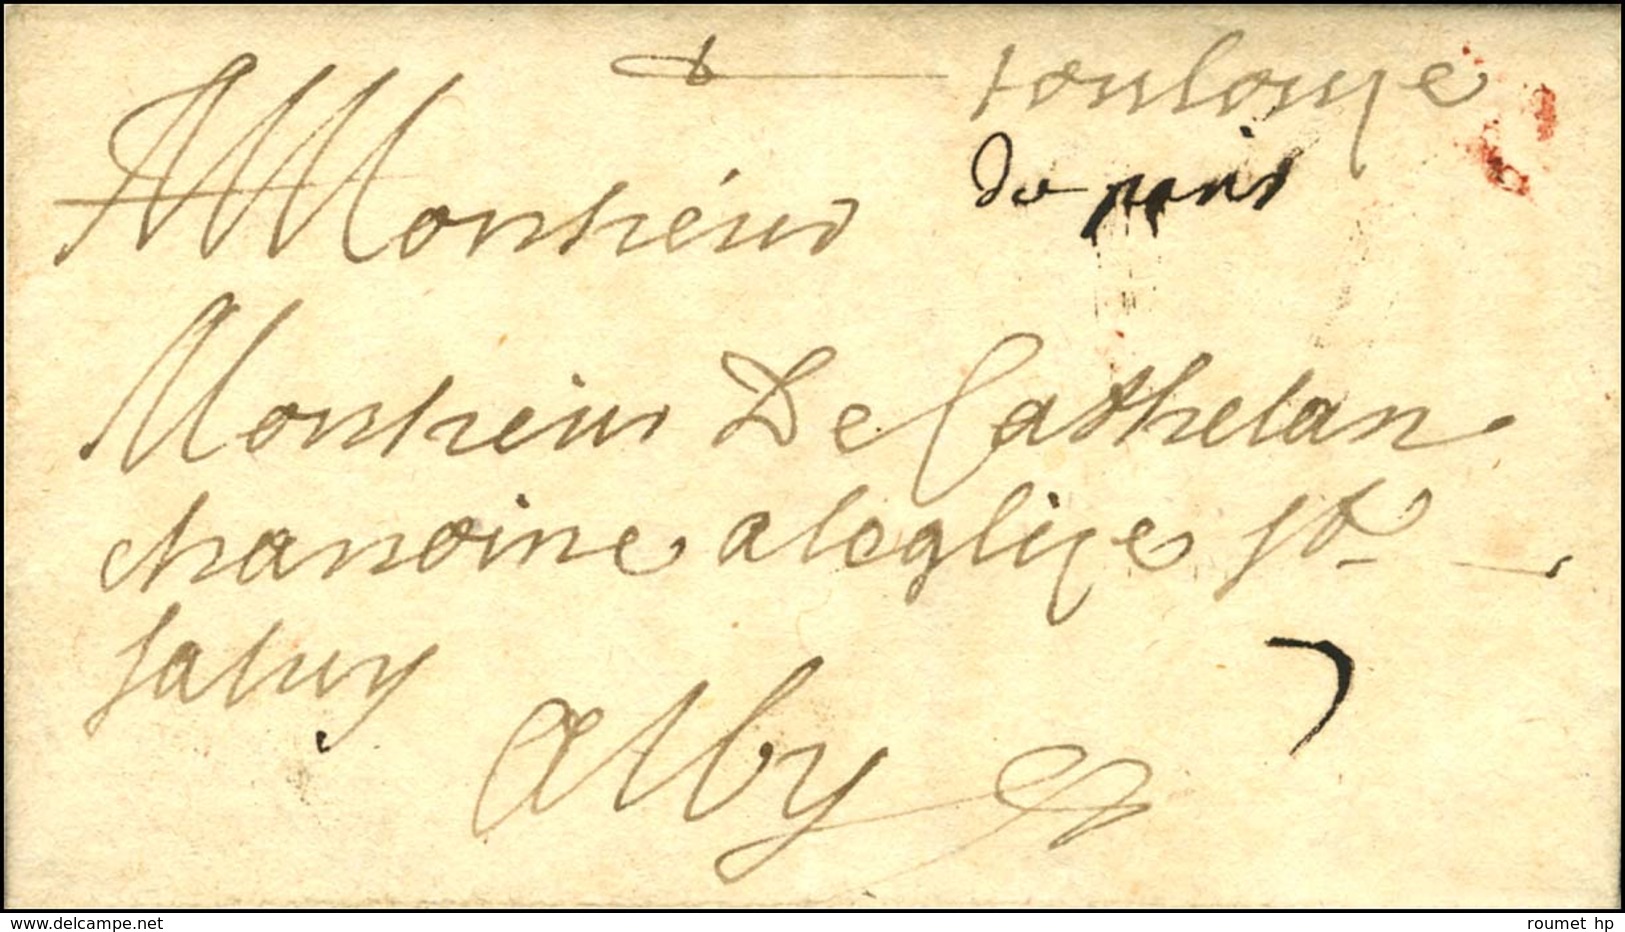 toulouze
de paris
A Monsieur
Monsieur De Cathelan
chanoine a leglize st
salvy
7
alby
delcampe.net
roumet hp